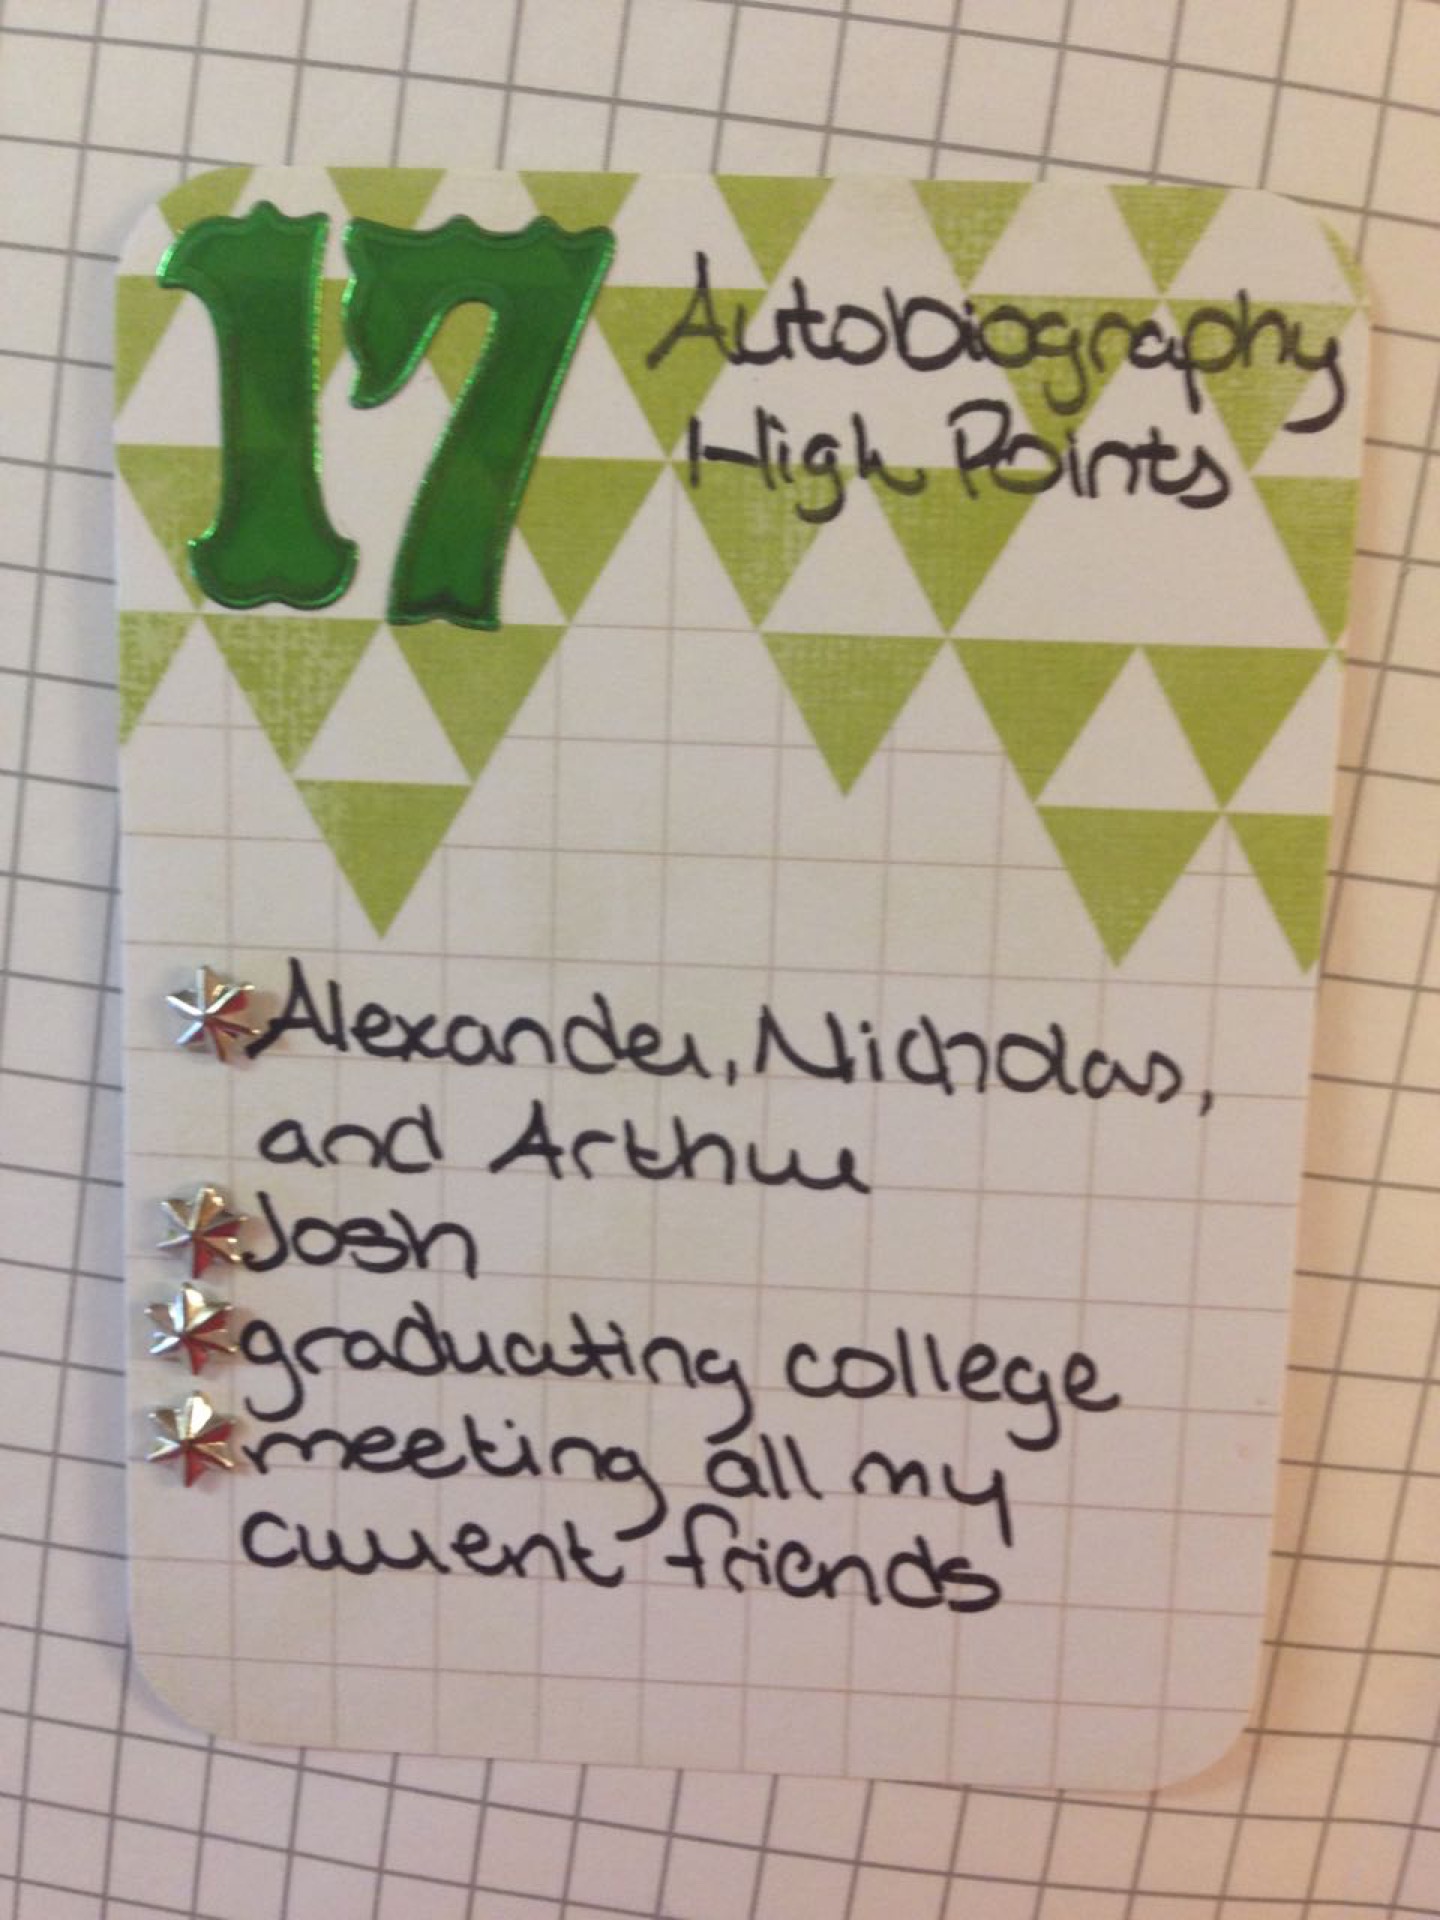 17
Autobiography
High Points
Alexander, Nicholas,
and Arthur
Josh
graduating college
meeting all my
current friends